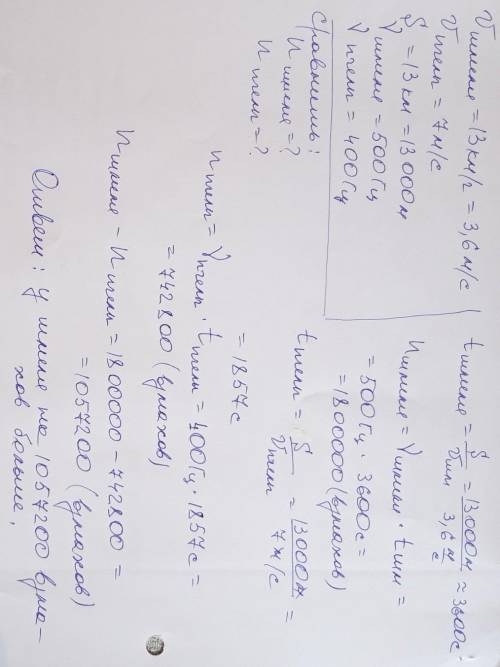 υ шмеля = 13 км/г = 3,6 м/с
υ пчелы = 7 м/с
S = 13 км = 13 000 м
ν шмеля = 500 Гц
ν пчелы = 400 Гц
Сравнить:
n шмеля = ?
n пчелы = ?
t шмеля = S/υ шм = 13000 м / 3,6 м/с ≈ 3600 с
n шмеля = ν шмеля · t шм =
= 500 Гц · 3600 с =
= 1800000 (взмахов)
t пчелы = S/υ пчелы = 13000 м / 7 м/с =
= 1857 с
n пчелы = ν пчелы · t пчелы = 400 Гц · 1857 с =
= 742800 (взмахов)
n шмеля – n пчелы = 1800000 – 742800 =
= 1057200 (взмахов)
Ответ: у шмеля на 1057200 взма-
хов больше.